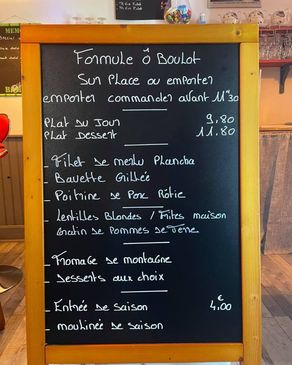 Formule ô Boulot
Sur Place ou emporter
emporter commander avant 11h30
Plat du Jour 9,80
Plat Dessert 11.80
_ Filet de merlu Plancha
_ Bavette Grillée
_ Poitrine de Porc Rôtie
_ Lentilles Blondes / Frites maison
Gratin de Pommes de Terre
_ Fromage de montagne
_ Desserts aux choix
_ Entrée de saison 4,00 €
_ moulinée de saison